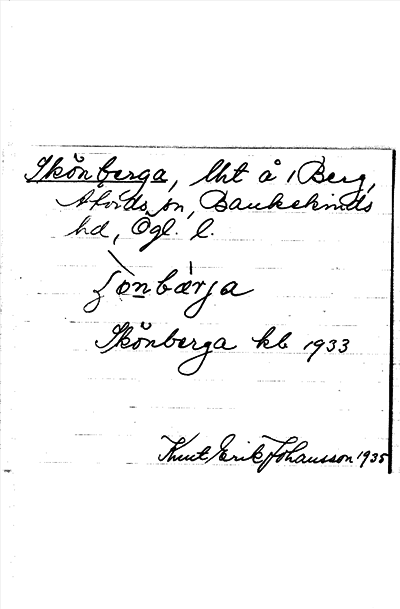 Skönberga, lht å 1 Berg,
Åtvids sn, Bankekinds
hd, Ögl. l.
ʃònbæ̀rja
Skönberga kb 1933
Knut Erik Johansson 1935